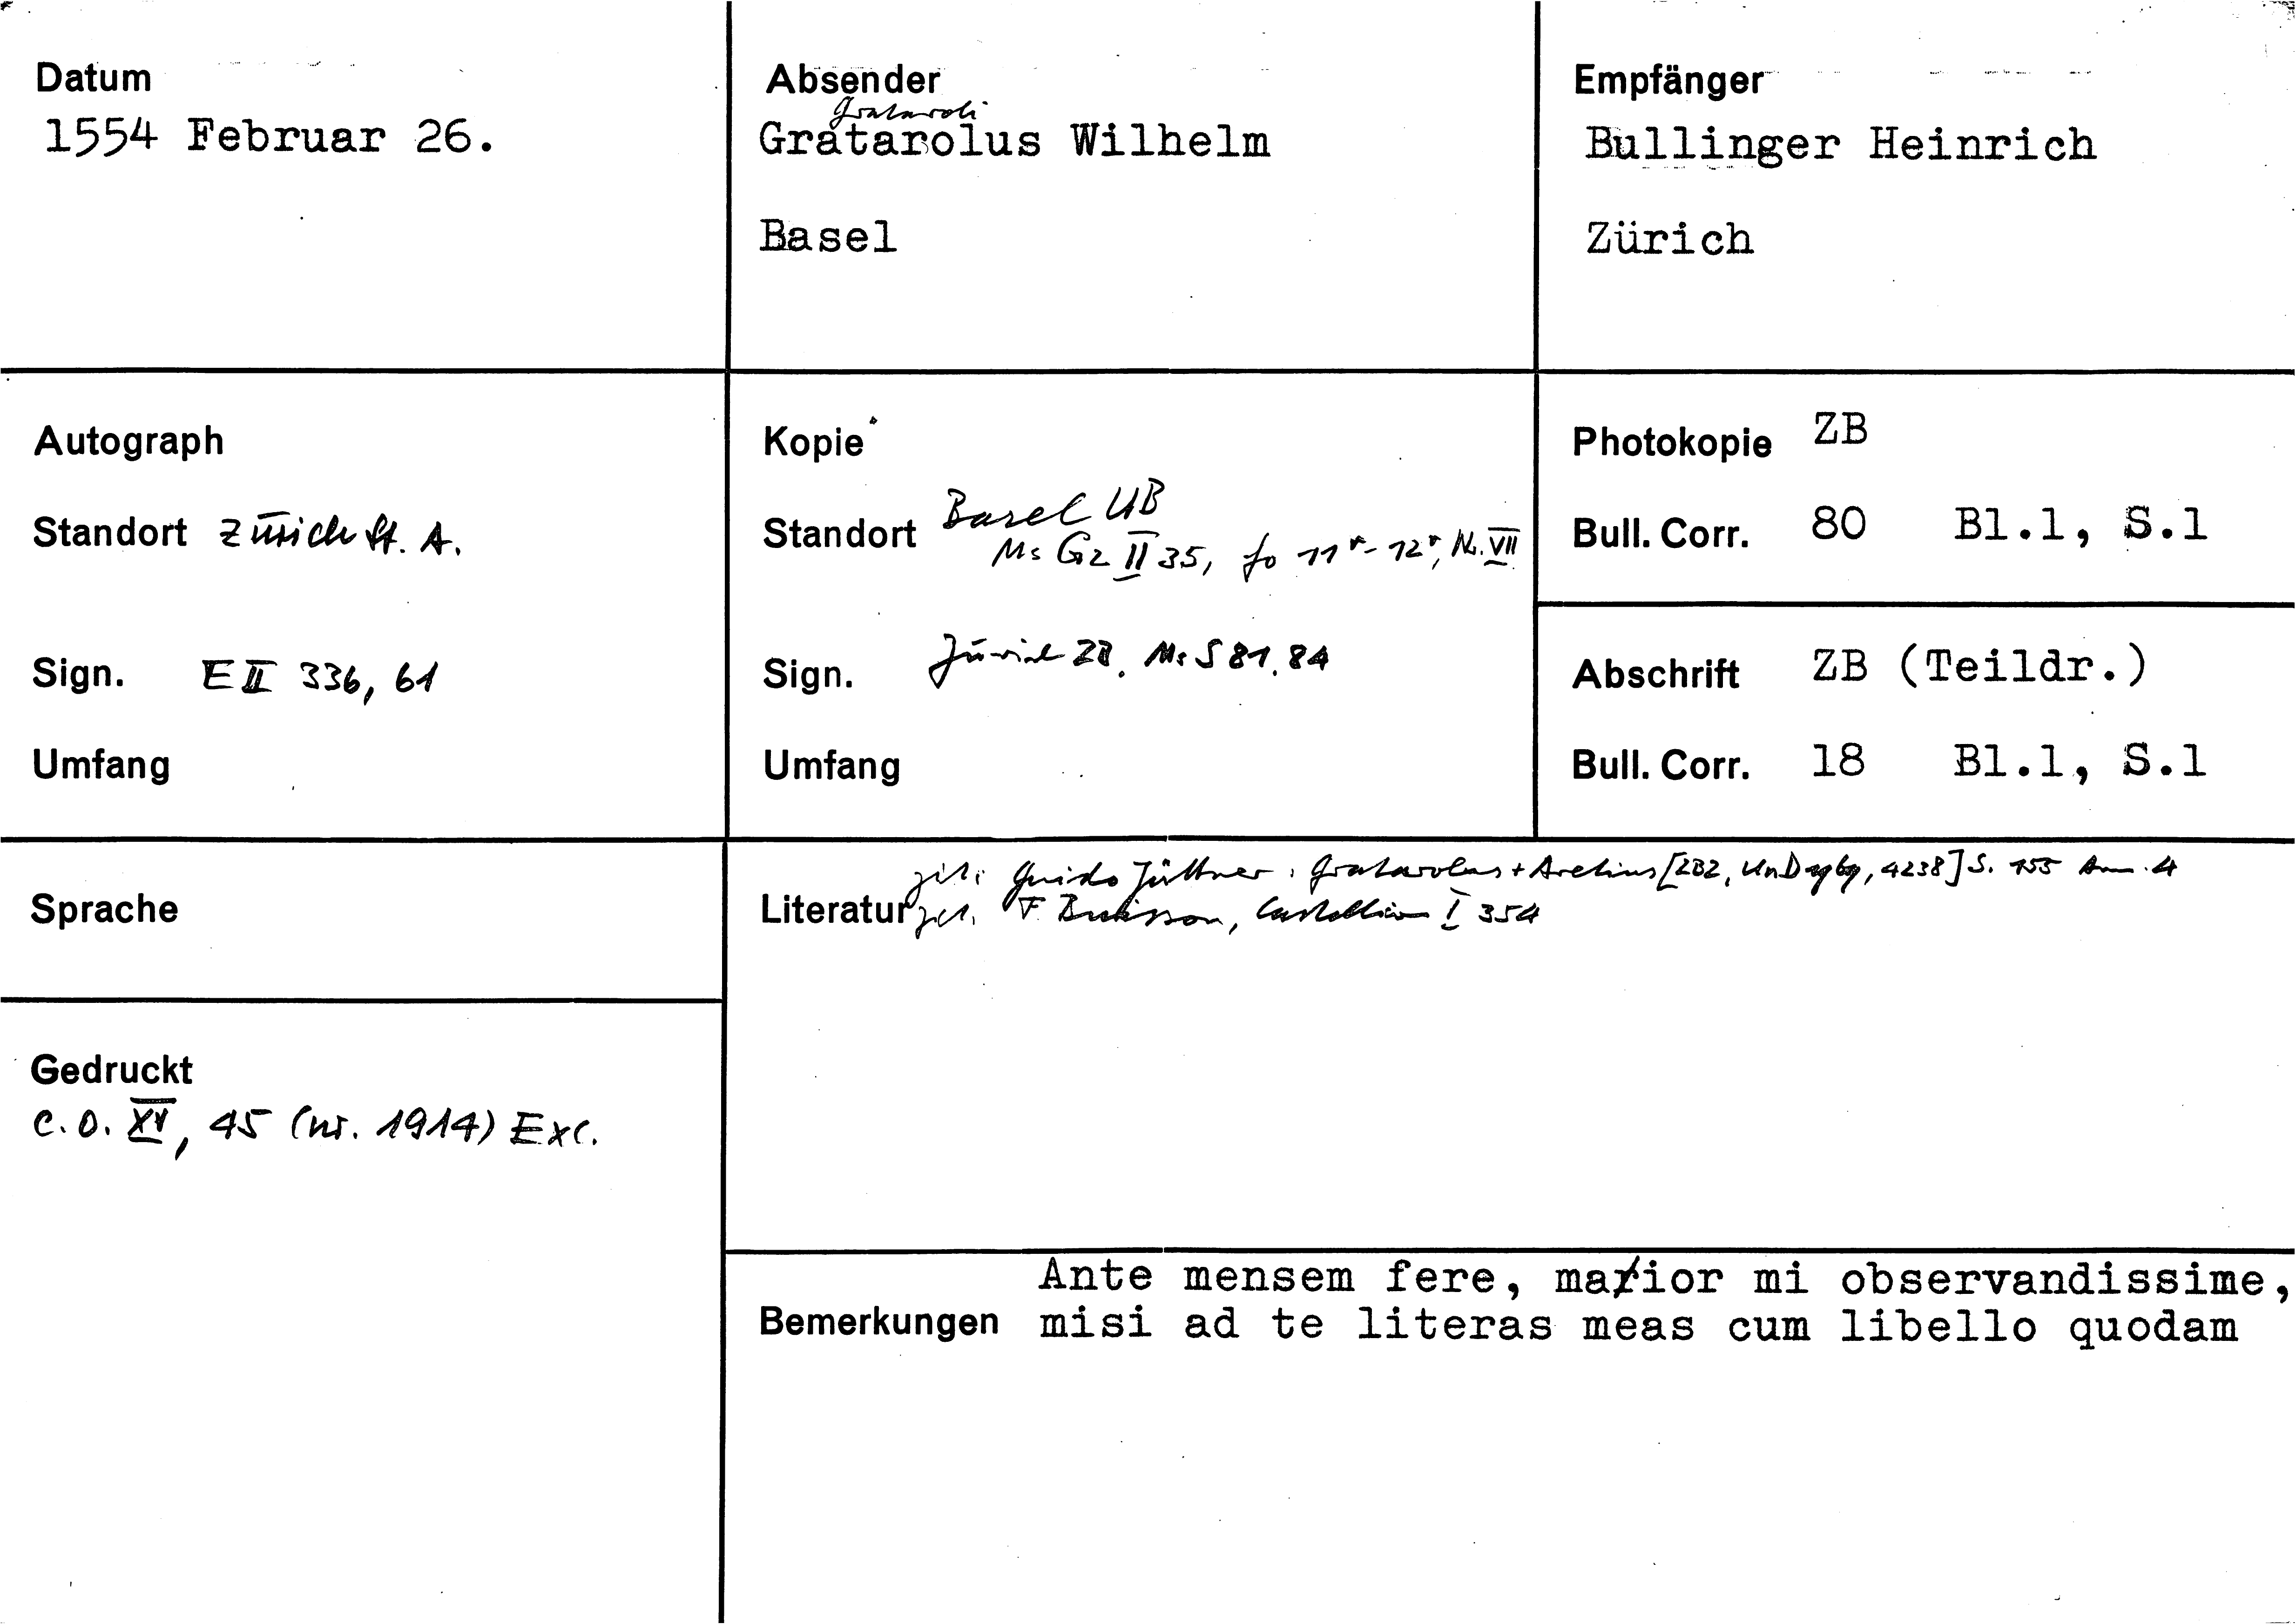 Datum
1554 Februar 26.
Absender
Grataroli
Gratarolus Wilhelm
Basel
Empfänger
Bullinger Heinrich
Zürich
Autograph
Standort Zürich St. A.
Sign. E II 336, 61
Umfang
Kopie
Standort Basel UB
Ms G2 II 35, fo 11r-12r, Nr. VII
Sign. Zürich ZB. Ms S 81.84
Umfang
Photokopie ZB
Bull. Corr. 80 Bl.1, S.1
Abschrift ZB (Teildr.)
Bull. Corr. 18 Bl.1, S.1
Sprache
Gedruckt
C.O. XV, 45 (nr. 1914) Exc.
zit. Guido Jüttner, Gratarolus + Aretius [ZB2, 4238] S. 155 Anm. 4
Literatur zit. F. Buisson, Castellion I 354
Ante mensem fere, maior mi observandissime,
Bemerkungen misi ad te literas meas cum libello quodam